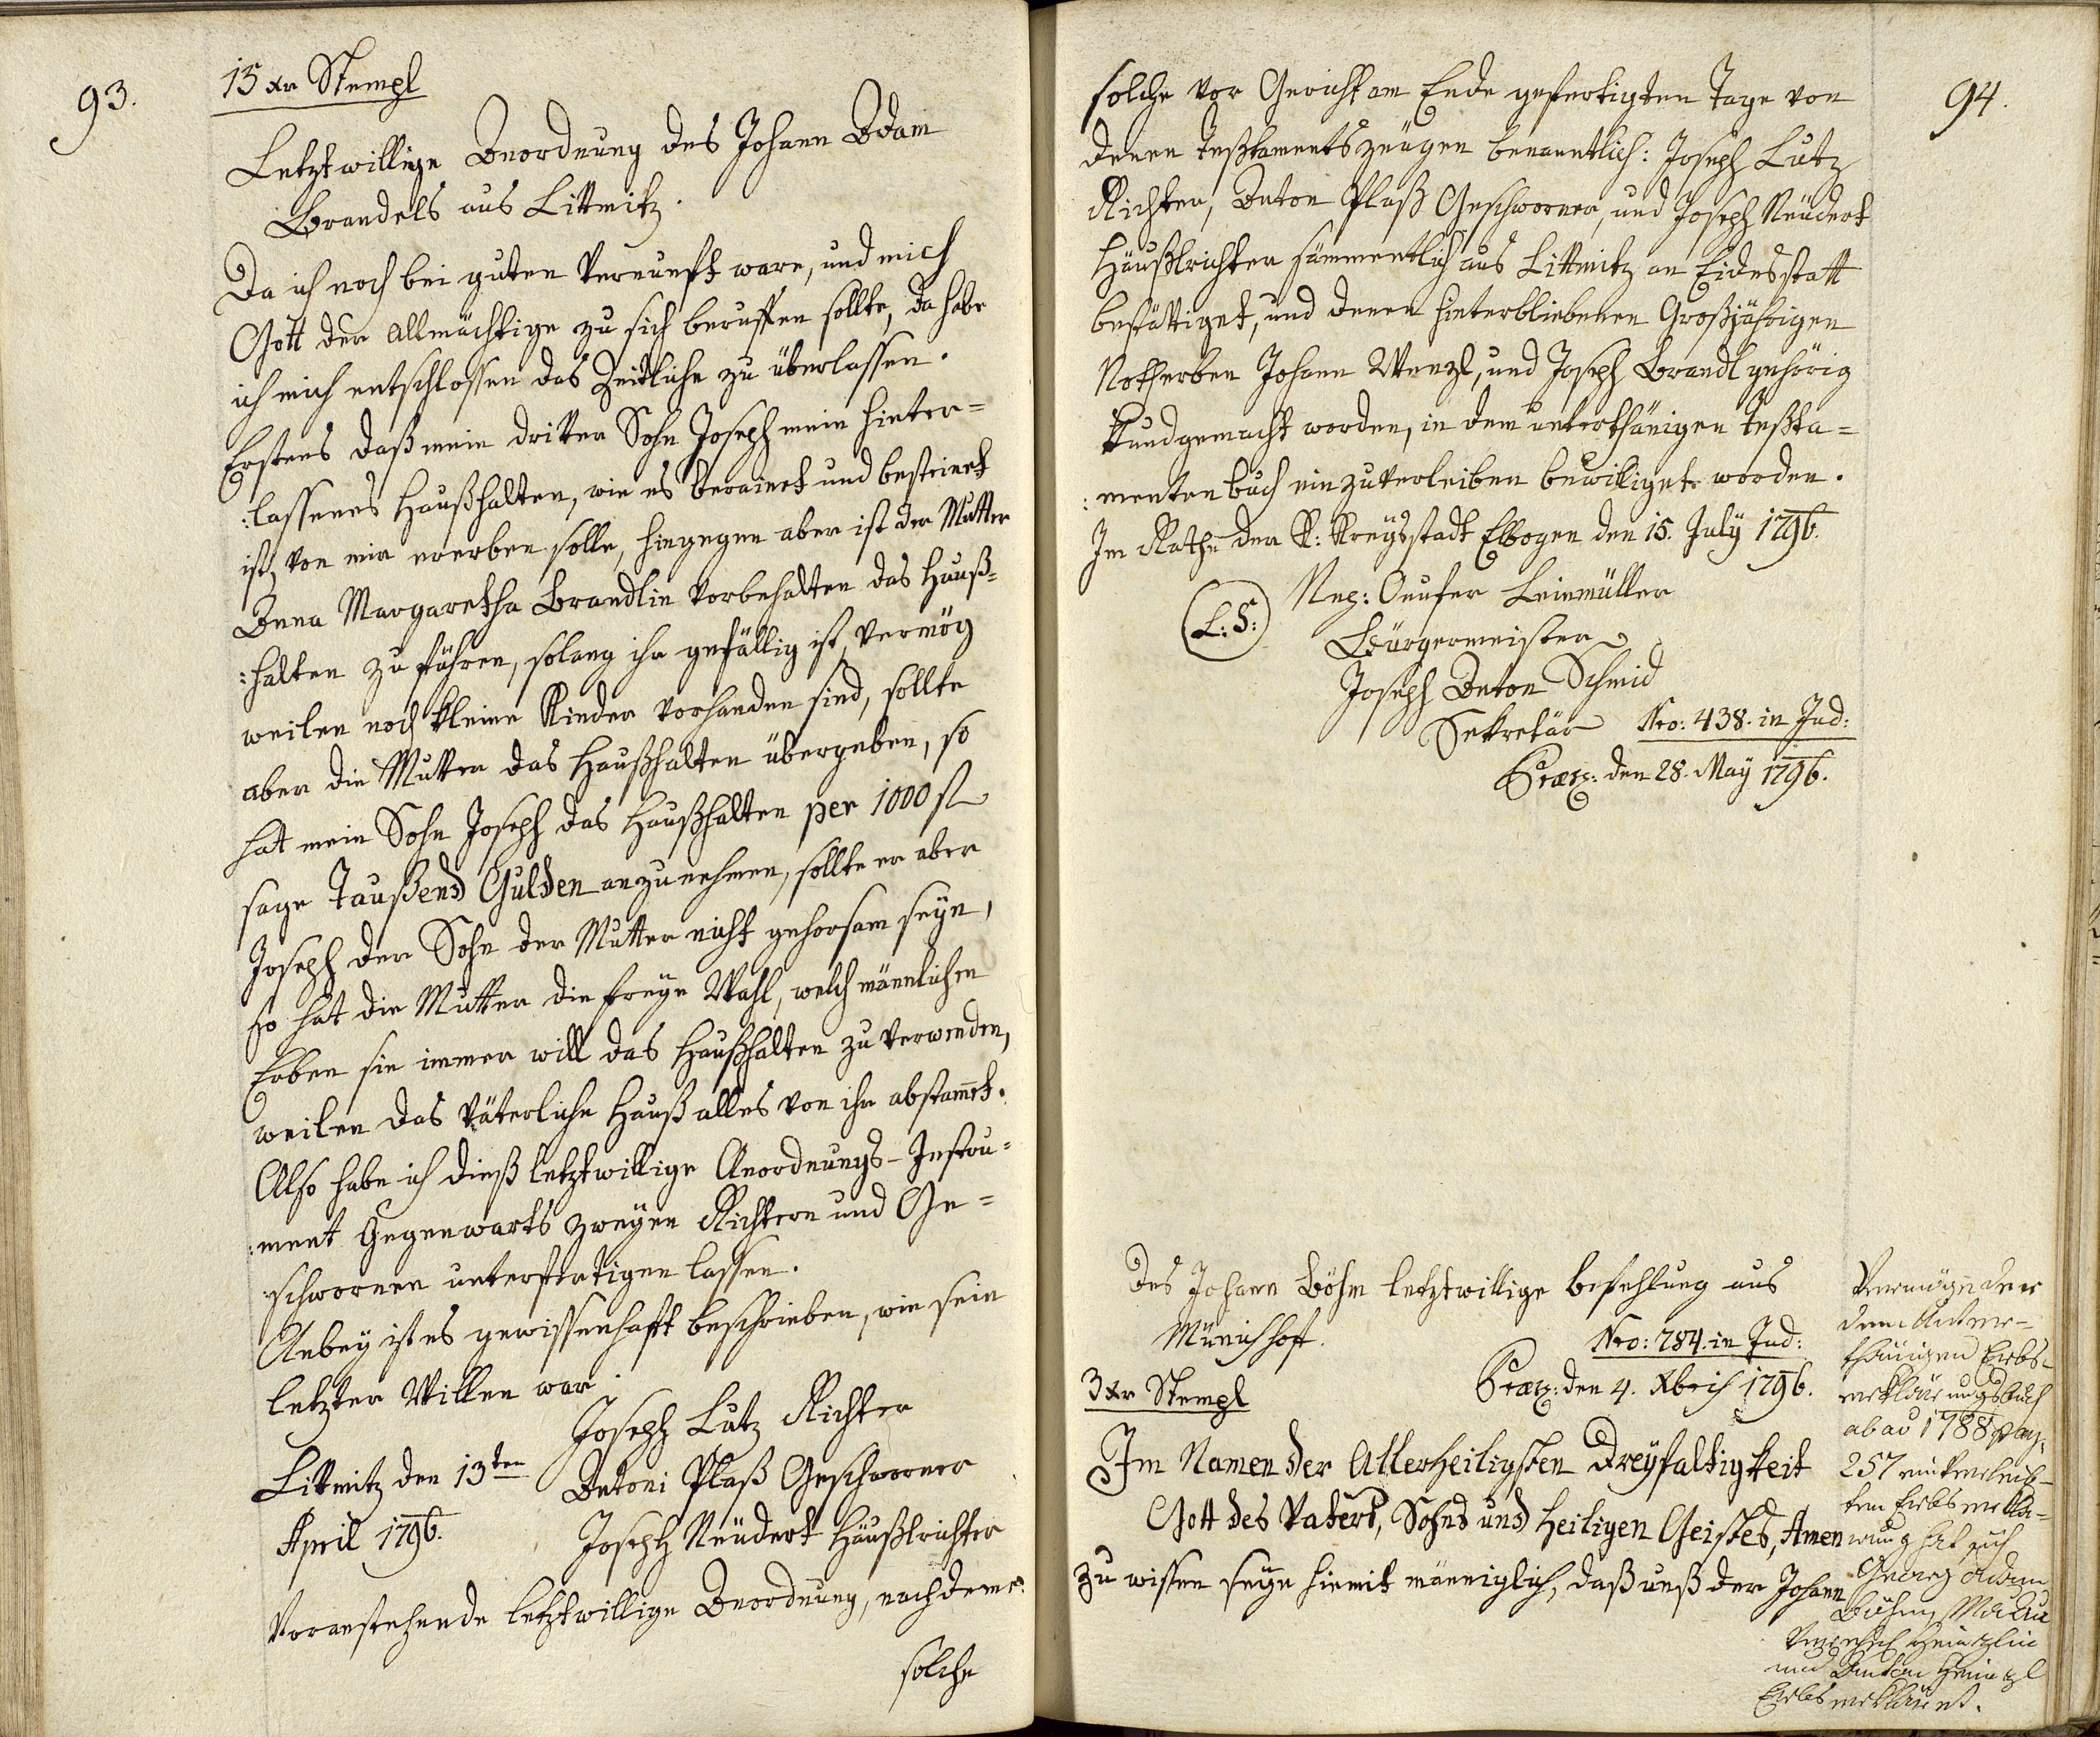 93.
15 xr Stempl
Letztwillige Anordnung des Johann Adam
Brandels aus Littmitz.
Da ich noch bei guten Vernunft ware, und mich
Gott der Allmächtige zu sich beruffen sollte, da habe
ich mich entschlossen das Zeitliche zu überlassen.
Erstens daß mein dritter Sohn Joseph mein hinter=
:lassenes Haußhalten, wie es berainet und besteinet
ist, von mir ererben solle, hingegen aber ist der Mutter
Anna Margaretha Brandlin vorbehalten das Hauß=
:halten zu führen, solang ihr gefällig ist, vermög
weilen noch kleine Kinder vorhanden sind, sollte
aber die Mutter das Haußhalten übergeben, so
hat mein Sohn Joseph das Haußhalten per 1000 fl
sage Taußend Gulden anzunehmen, sollte er aber
Joseph der Sohn der Mutter nicht gehorsam seyn,
so hat die Mutter die freye Wahl, welch männlichen
Erben sie immer will das Haußhalten zu verwenden,
weilen das väterliche Hauß alles von ihr abstam̄et.
Also habe ich dieß letztwillige Anordnungs-Instru=
:ment Gegenwarts zweyen Richtern und Ge=
:schwornen unterfertigen lassen.
Anbey ist es gewissenhafft beschrieben, wie sein
letzter Willen war.
Joseph Lutz Richter
Littmitz den 13ten
Antoni Plaß Geschworner
April 1796.
Joseph Neudert Häußlrichter
Voranstehende letztwillige Anordnung, nachdeme
solche
94.
solche vor Gericht am Ende gefertigten Tage von
denen Testamentszeugen benanntlich: Joseph Lutz
Richter, Anton Plaß Geschworner, und Joseph Neudert
Häußlrichter sämmentlich aus Littmitz an Eidesstatt
bestättiget, und denen hinterbliebenen Großjährigen
Notherben Johann Wenzl, und Joseph Brandl gehörig
kundgemacht worden, in dem unterthänigen Testa=
:mentenbuch einzuverleiben bewilliget worden.
Im Rathe der K: Kreysstadt Elbogen den 15. July 1796.
(L:S:)
Neg: Onufer Leinmüller
Bürgermeister
Joseph Anton Schmid
Sekretär
Nro: 438. in Jud:
Præs: den 28. May 1796.
Des Johann Böhm letztwillige Befehlung aus
Münichhoff.
Nro: 784. in Jud:
3 xr Stempl
Præs: den 4. Xbris 1796.
Im Namen der Allerheiligsten Dreyfaltigkeit
Gott des Vaters, Sohns und Heiligen Geistes, Amen
zu wissen seye hiemit männiglich, daß unß der Johann
Vermög der in
dem Unter-
thänigen Erbs-
erklärungsbuch
ab ao 1788 pag:
257 einverleib-
ten Erbserklä-
rung hat sich
Georg Adam
Böhm,
Heinzlin
und Anton Heinzl
Erbserkläret.